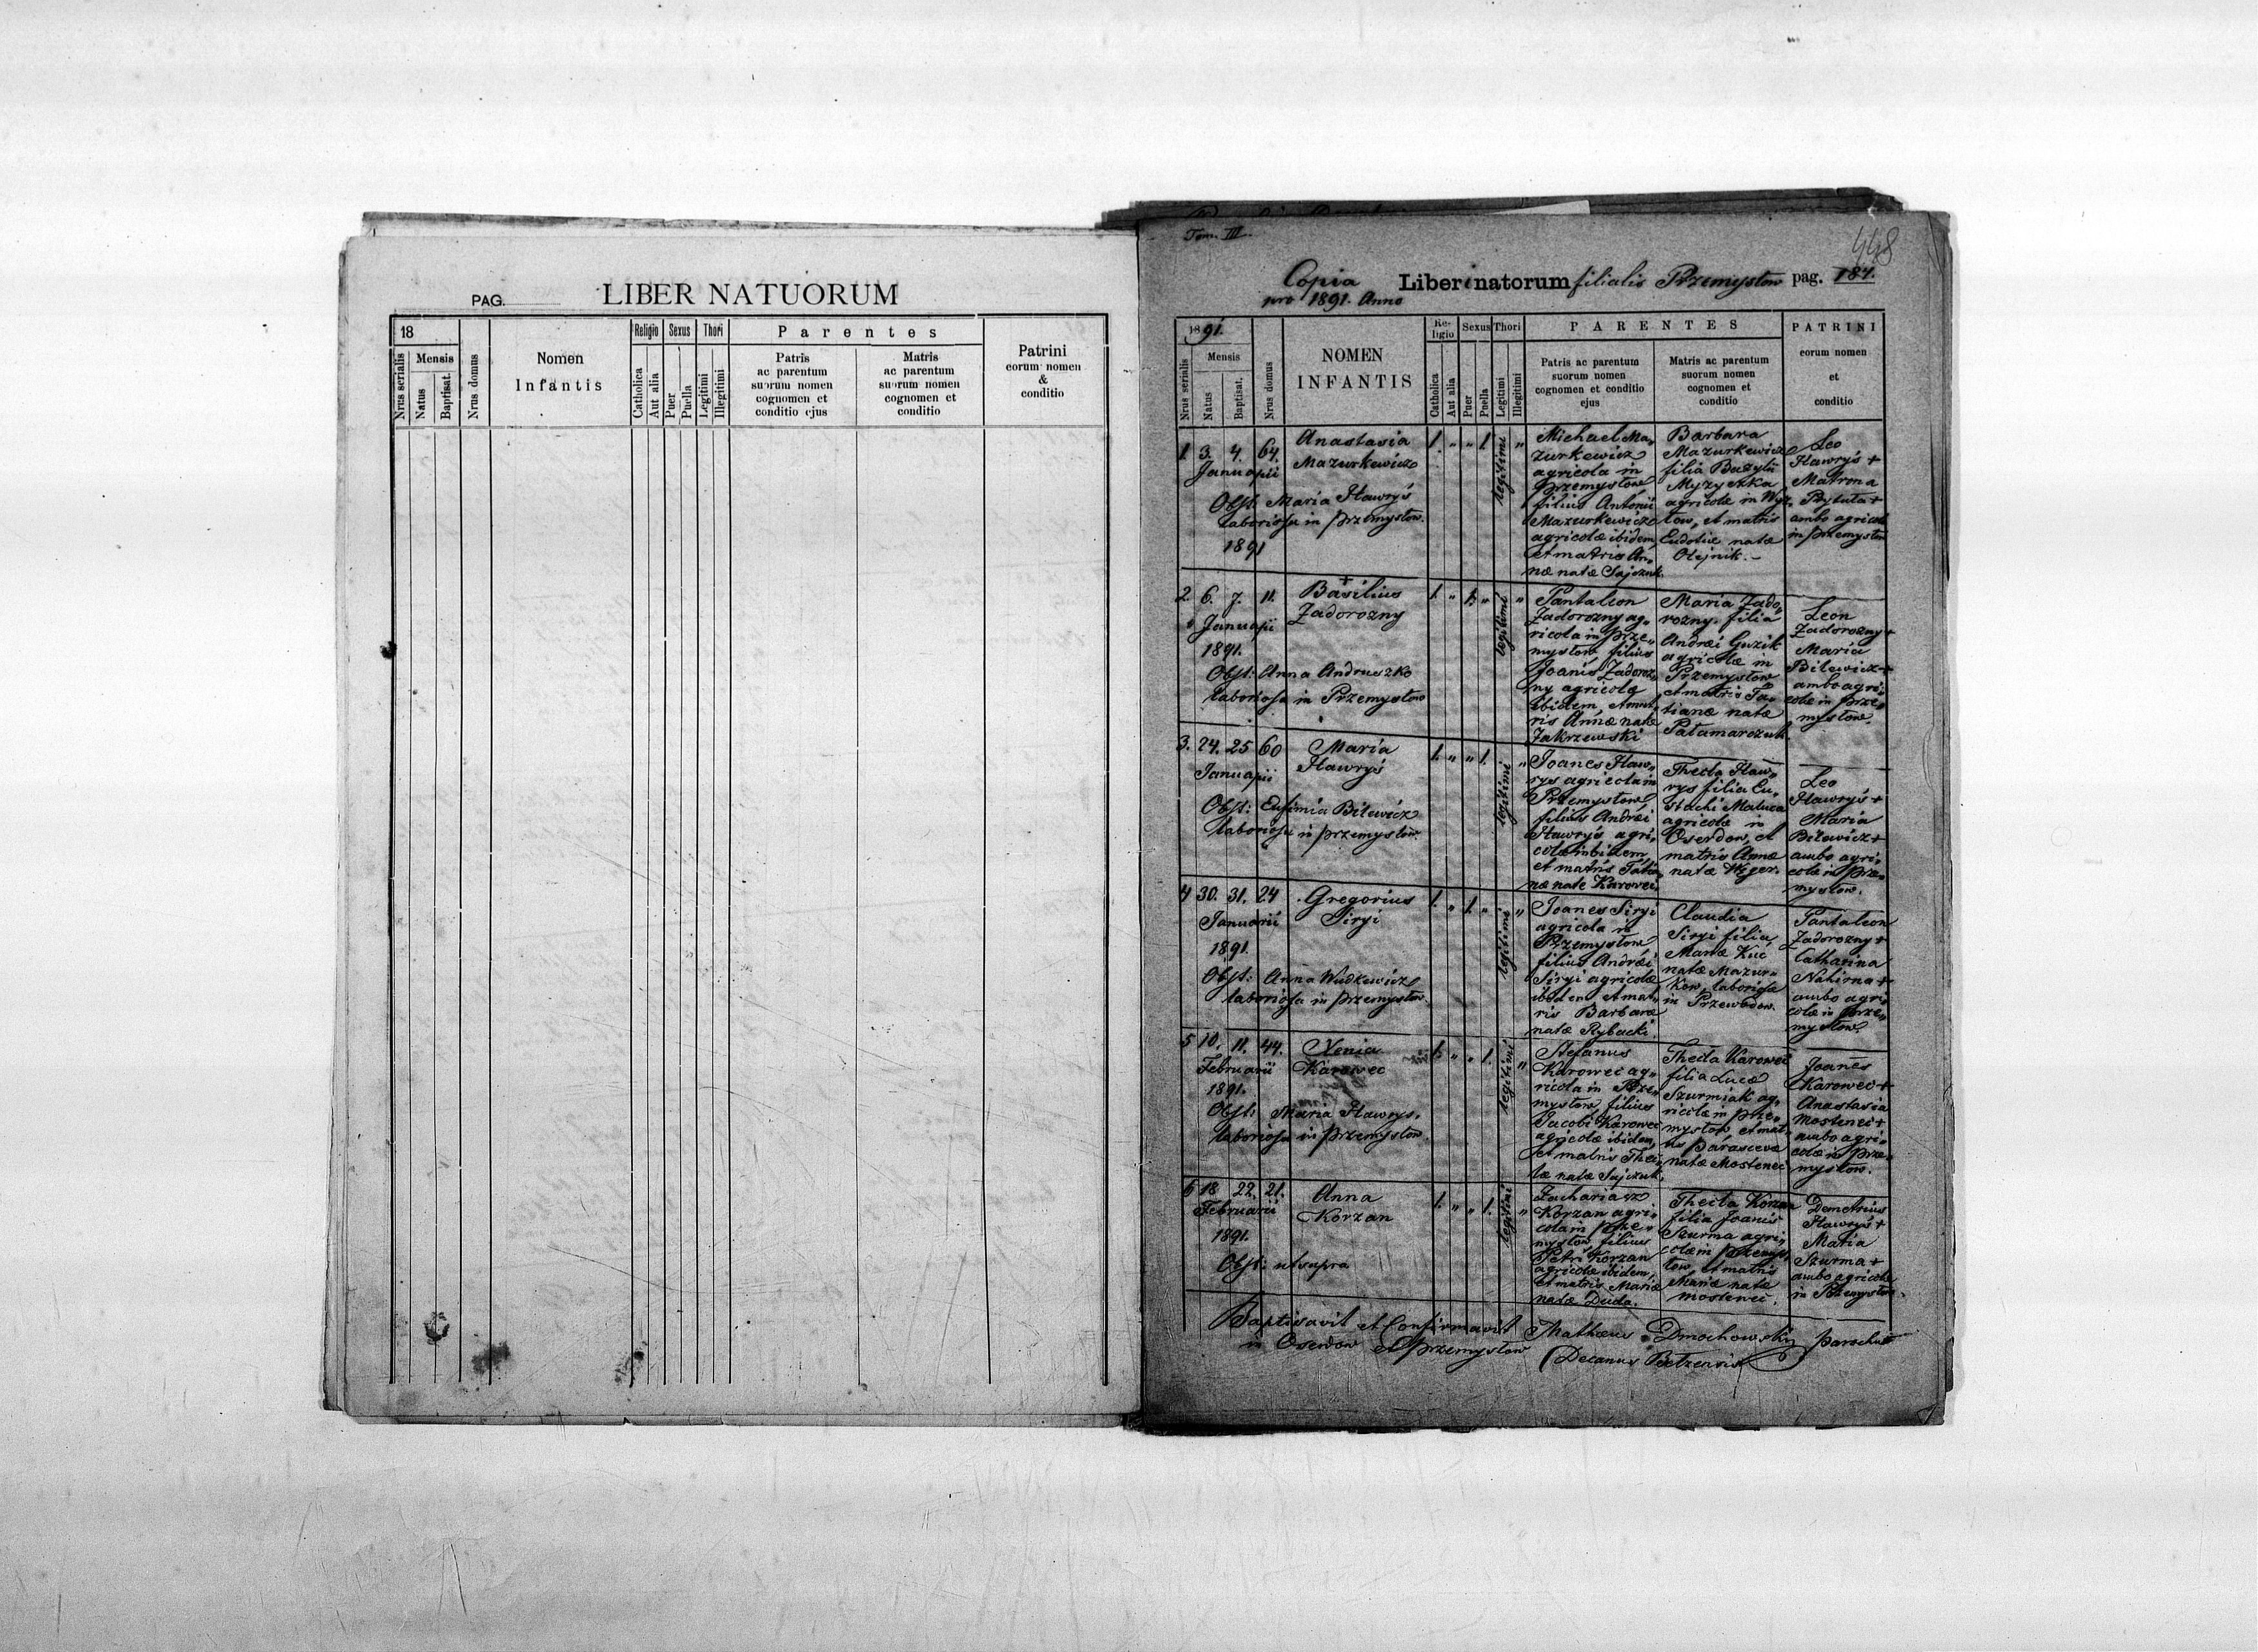 PAG.
LIBER NATUORUM
18
Mensis
Nrus serialis
Natus
Baptisat.
Nrus domus
Nomen
Infantis
Religio
Sexus
Thori
Catholica
Aut alia
Puer
Puella
Legitimi
Illegitimi
Parentes
Patris
ac parentum
suorum nomen
cognomen et
conditio ejus
Matris
ac parentum
suorum nomen
cognomen et
conditio
Patrini
eorum nomen
&
conditio
Tom. III.
448
Copia Liber natorum filialis Przemysłow pag. 187.
pro 1891. Anno
1891.
Mensis
Nrus serialis
Natus
Baptisat.
Nrus domus
NOMEN
INFANTIS
Religio
Sexus
Thori
Catholica
Aut alia
Puer
Puella
Legitimi
Illegitimi
PARENTES
Patris ac parentum
suorum nomen
cognomen et conditio
ejus
Matris ac parentum
suorum nomen
cognomen et
conditio
PATRINI
eorum nomen
et
conditio
1. 3. 4. 64.
Januarii
1891
Anastasia
Mazurkewicz
Obst: Maria Hawryś
laboriosa in Przemysłow.
1. " " 1. legitimi "
Michael Ma„
zurkewicz
agricola in
Przemysłow
filius Antonii
Mazurkewicz
agricolæ ibidem,
et matris An„
næ natæ Sajczuk.
Barbara
Mazurkewicz
filia Bazylii
Myzyczka
agricolæ in Wyż
low, et matris
Eudotiæ natæ
Olejnik.-
Leo
Hawryś +
Matrona
ambo agricolæ
in Przemysłow
2. 6. 7. 11.
Januarii
1891.
+
Basilius
Zadorozny
Obst: Anna Andruszko
laboriosa in Przemysłow
1. " 1. " legitimi "
Pantaleon
Zadorozny ag„
ricola in Prze„
mysłow filius
Joanis Zadoroz„
ny agricolæ
ibidem, et mat„
ris Annæ natæ
Zakrzewski
Maria Zado„
rozny. filia
Andrei Guzik
agricolæ in
Przemysłow
et matris Ta„
tianæ natæ
Pałamarczuk.
Leon
Zadorozny +
Maria
Biłewicz +
ambo agri„
colæ in Prze„
mysłow.
3. 24. 25 60
Januarii
Maria
Hawryś
Obst: Eufimia Biłewicz
laboriosa in Przemysłow.
1. " " 1. legitimi "
Joanes Haw„
rys agricola in
Przemysłow
filius Andrei
Hawryś agri„
colæ ibidem,
et matris Tatia„
næ natæ Karowec.
Thecla Haw„
rys filia Eu„
stachi Maluca
agricolæ in
Oserdow, et
matris Annæ
natæ Węger.
Leo
Hawryś +
Maria
Biłewicz +
ambo agri„
colæ in Prze„
mysłow.
4 30. 31. 24
Januarii
1891.
Gregorius
Siryi
Obst: Anna Wudkewicz
laboriosa in Przemysłow.
1. " 1. " legitimi "
Joanes Siryi
agricola in
Przemysłow
filius Andréi
Siryi agricolæ
ibidem et mat„
ris Barbaræ
natæ Rybacki.
Claudia
Siryi filia
Mariæ Kuc
natæ Mazur„
kow, laboriosa
in Przewodow.
Pantaleon
Zadorozny +
Catharina
Nahirna +
ambo agri„
colæ in Prze„
mysłow.
5 10. 11. 44.
Februarii
1891.
Xenia
Karowec
Obst: Maria Hawrys.
laboriosa in Przemysłow.
1. " " 1. legitimi "
Stefanus
Karowec ag„
ricola in Prze„
mysłow filius
Jacobi Karowec
agricolæ ibidem,
et matris Thec„
læ natæ Sajczuk.
Thecla Karowec
filia Lucæ
Szurmiak ag„
ricolæ in Prze„
mysłow et mat„
ris Parascevæ
natæ Mostenec
Joanes
Karowec +
Anastasia
Mostenec +
ambo agri„
colæ in Prze„
mysłow.
6 18. 22. 21.
Februarii
1891.
Anna
Korzan
Obst: ut supra
1. " " 1. legitimi "
Zacharias
Korzan agri„
cola in Prze„
mysłow, filius
Petri Korzan
agricolæ ibidem,
et matris Mariæ
natæ Duda.
Thecla Korzan
filia Joanis
Szurma agri„
colæ in Przemys„
low, et matris
Mariæ natæ
Mostenec.
Demetrius
Hawryś +
Maria
Szurma +
ambo agricolæ
in Przemysłow.
Baptisavit et Confirmavit Mathæus Dmochowski parochus
in Oserdow et Przemysłow Decanus Betzensis